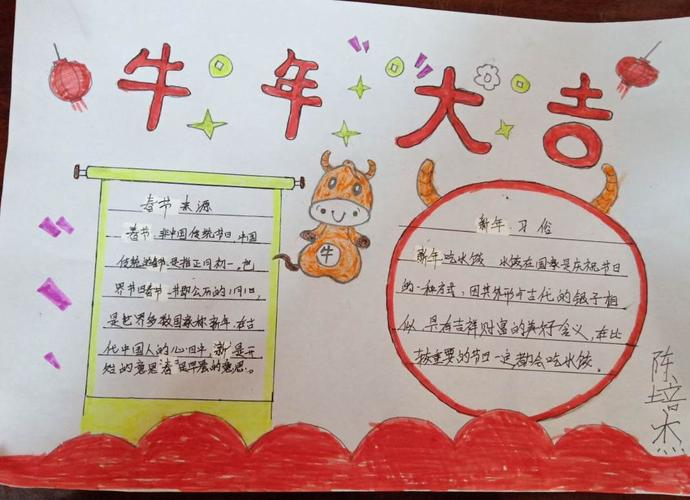 牛年大吉
春节来源
春节,非中国传统节日,中国
传统春节是指正月初一。把
界节日春节一书即公历的1月1日,
是世界多数国家称新年,在古
代中国人的心目中,新是开
姓的意思春是早晨的意思。
牛
新年习俗
新年吃水饺 水饺在国家是庆祝节日
的一种方式,因其外形与古代的银子相
似,具有吉祥财富的美好含义,在比
较重要的节日一定都会吃水饺。
陈培杰